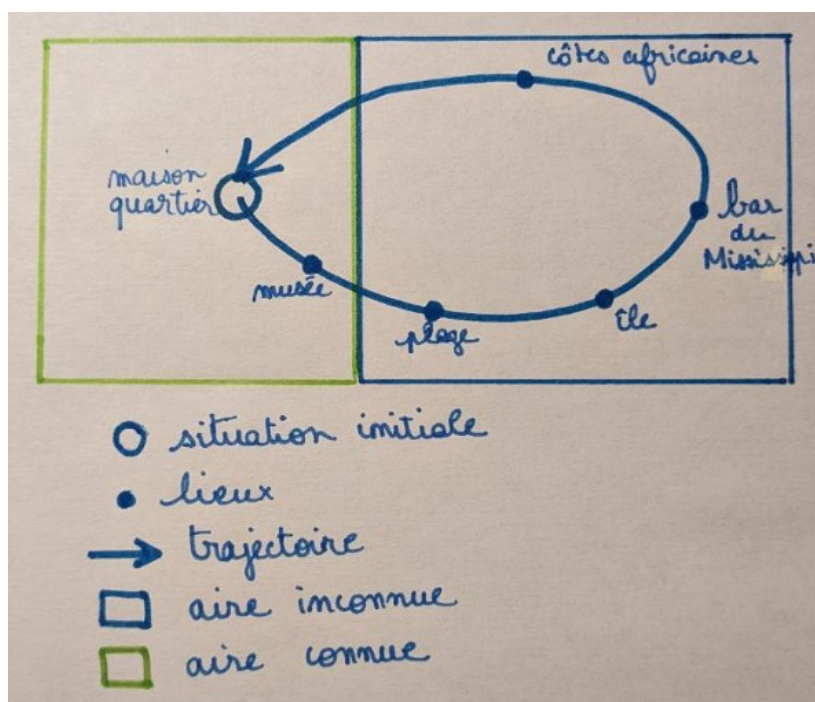 côtes africaines
maison
quartier
bar
du
Mississipi
musée
plage
île
situation initiale
lieux
trajectoire
aire inconnue
aire connue